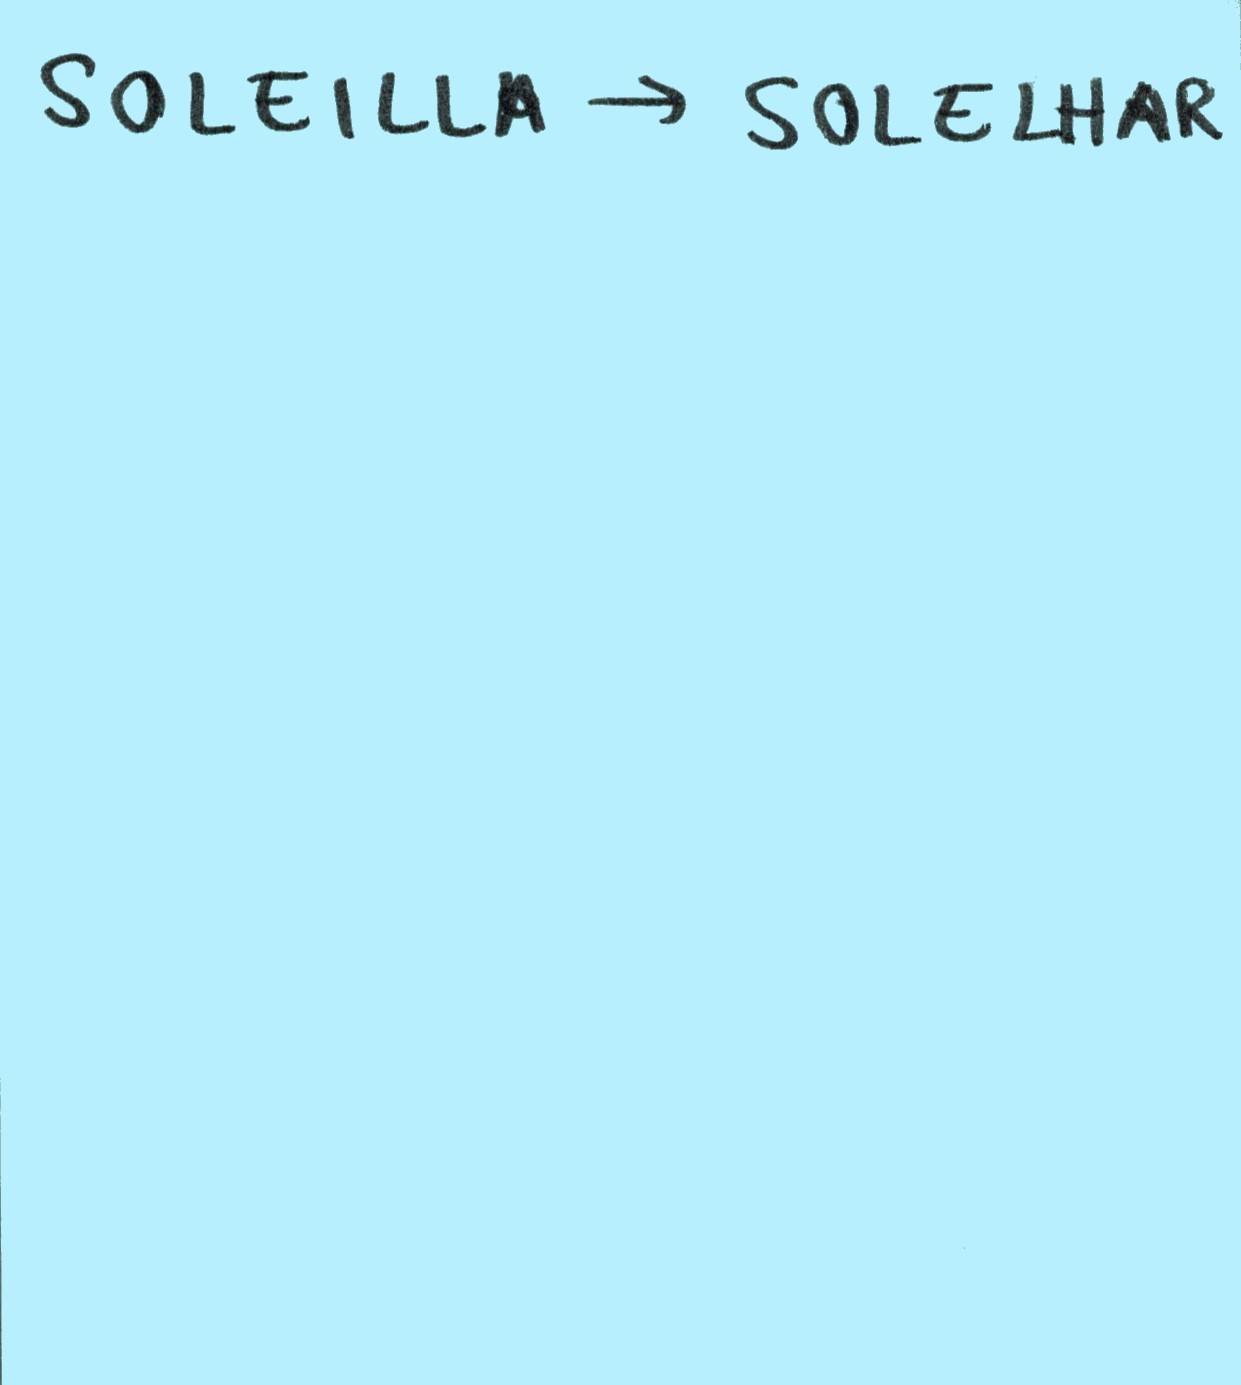 SOLEILLA → SOLELHAR